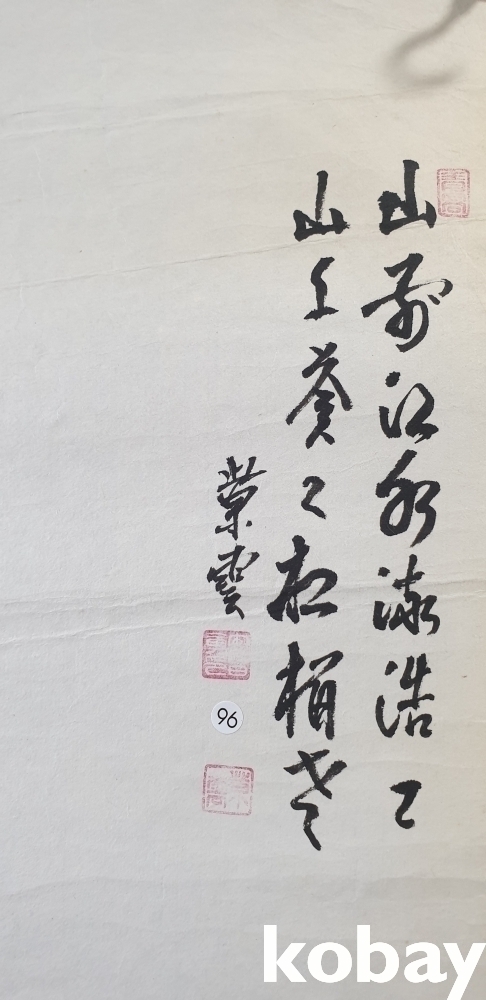 山前江水流浩〻
山上蒼〻松栢老
雲
96
kobay